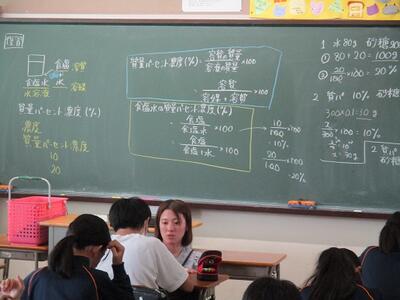 復習
食塩 溶質
水
食塩水 水 溶媒
水溶液
質量パーセント濃度(%)
濃度
質量パーセント濃度
10
20
質量パーセント濃度(%)
= 溶質の質量/溶液の質量 ×100
= 溶質/溶媒+溶質 ×100
食塩水の質量パーセント濃度(%)
= 食塩/食塩水 ×100
= 食塩/食塩+水 ×100
10/100 ×100
=10%
20/100 ×100
=20%
1 水80g 砂糖20g
① 80+20=100g
② 20/100 ×100=20%
2 質パ 10%
300×0.1=30g
x/300 ×100=10%
x=30g
2 質パ
砂糖